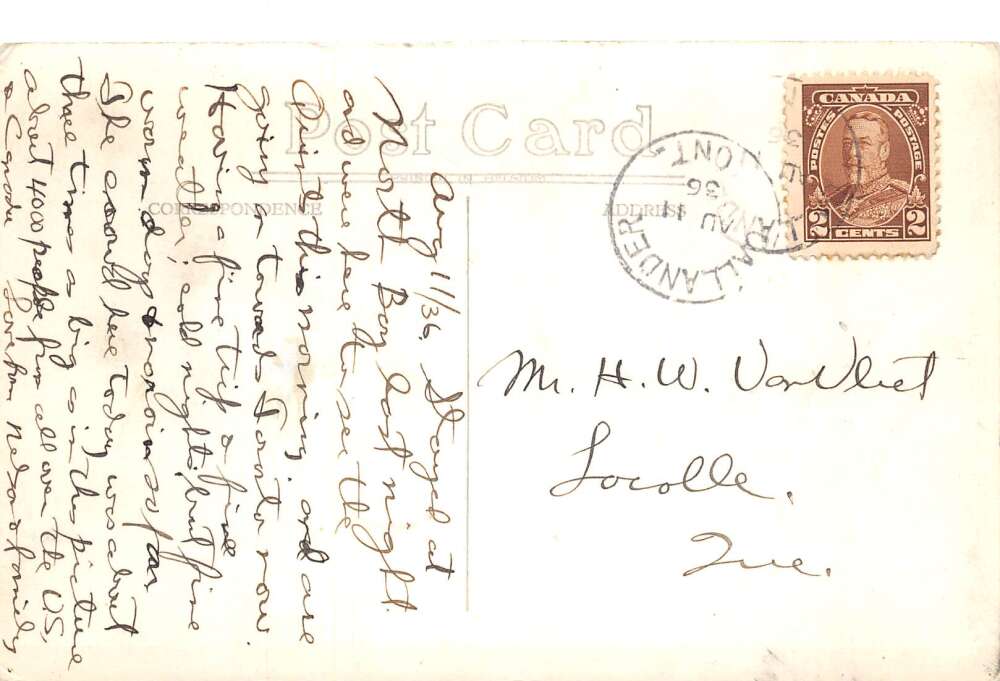 Post Card
CORRESPONDENCE
ADDRESS
CANADA
POSTES POSTAGE
2 2
CENTS
CALLANDER
AU 11
36
ONT
Aug 11/36. Stayed at
North Bay last night
and were here to see the
Quints this morning, and are
going on towards Toronto now.
Having a fine trip & fine
weather; cold nights but fine
warm days & no rain so far
The crowd here today was about
three times as big as in this picture
about 4000 people from all over the US,
& Canada Love from Nelson & family.
Mr. H. W. VanVliet
Lacolle.
Que.